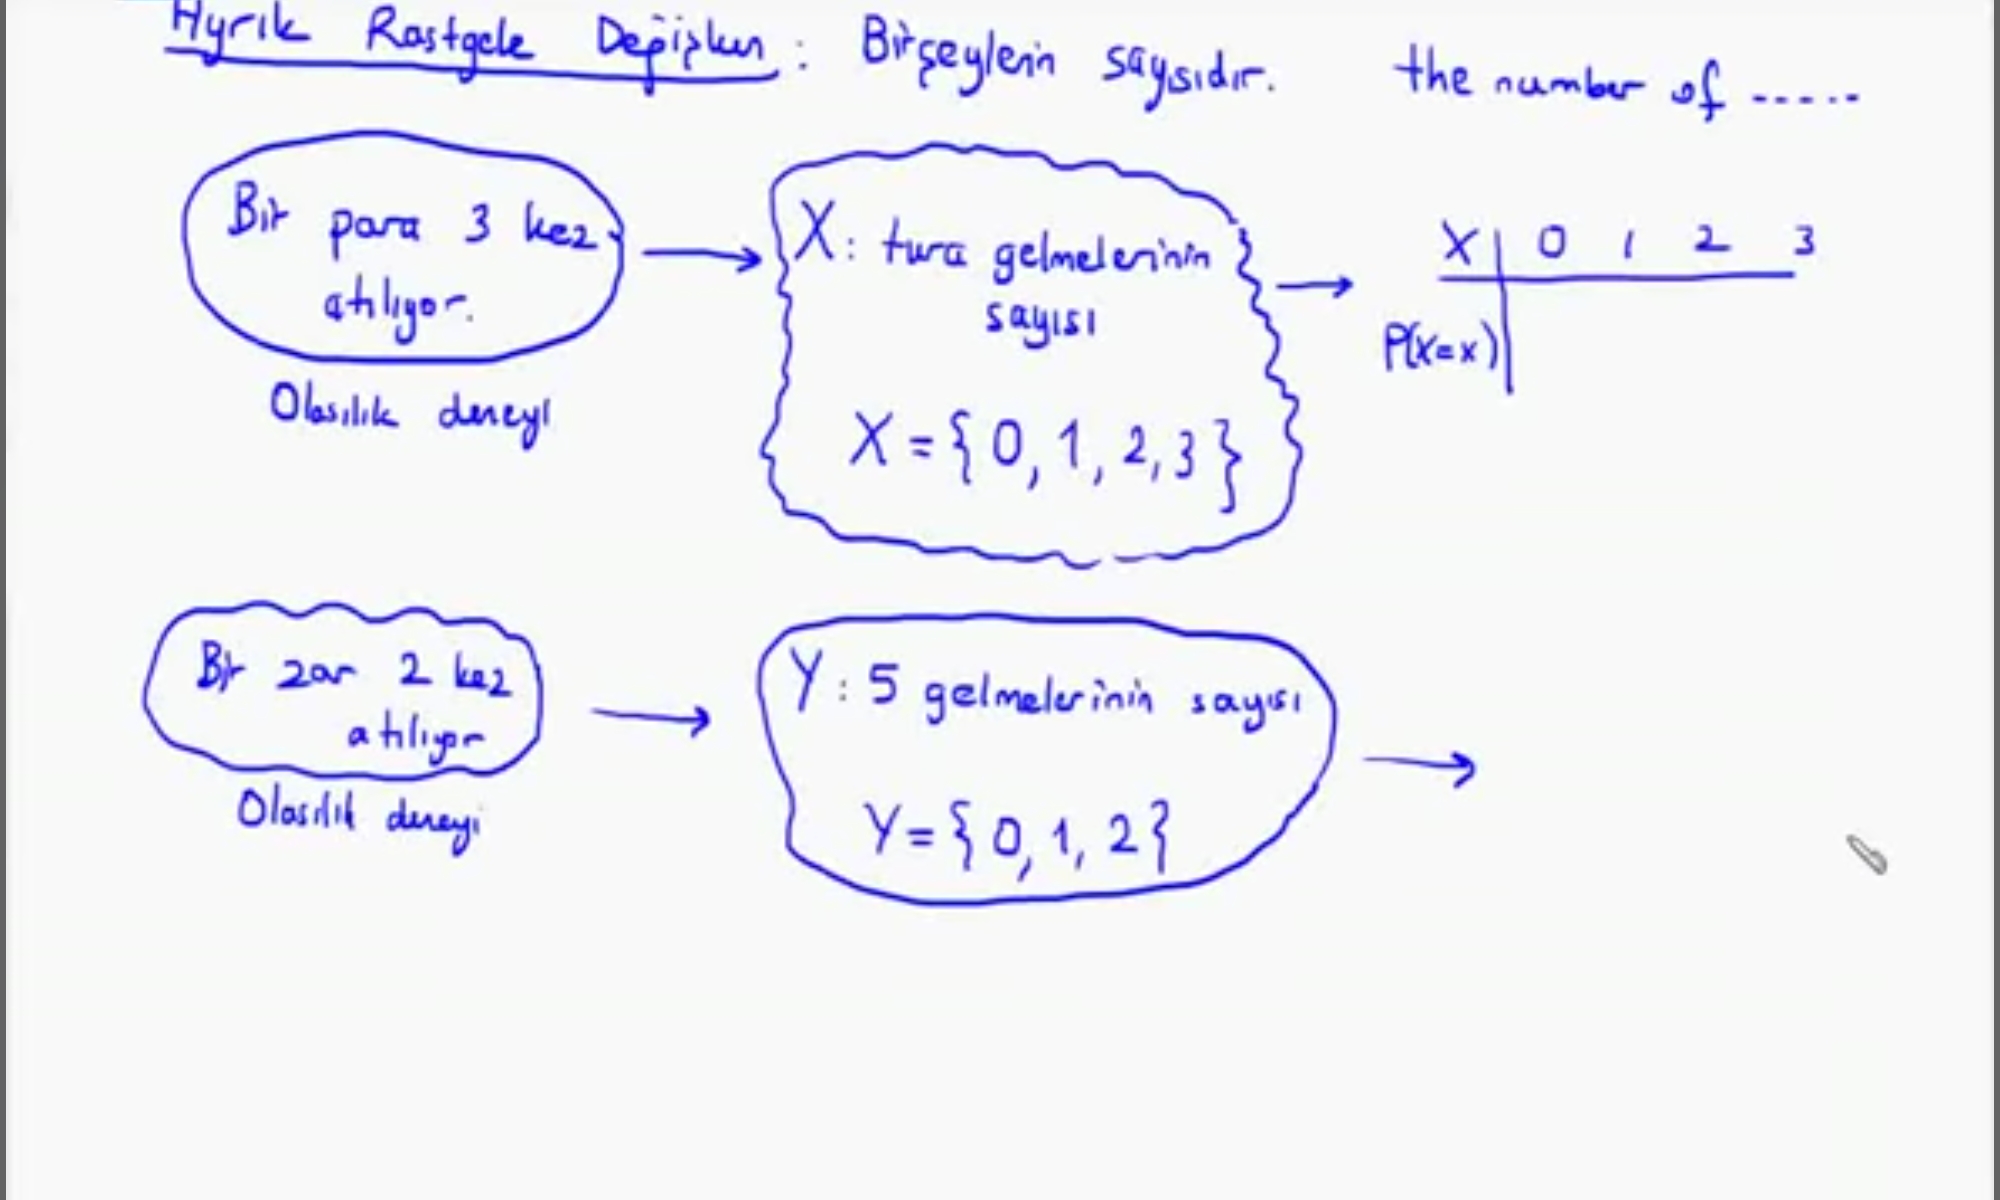 Ayrık Rastgele Değişken : Birşeylerin sayısıdır. the number of .....
Bir para 3 kez
atılıyor.
Olasılık deneyi
X: tura gelmelerinin
sayısı
X = {0, 1, 2, 3}
X 0 1 2 3
P(X=x)
Bir zar 2 kez
atılıyor
Olasılık deneyi
Y : 5 gelmelerinin sayısı
Y = {0, 1, 2}